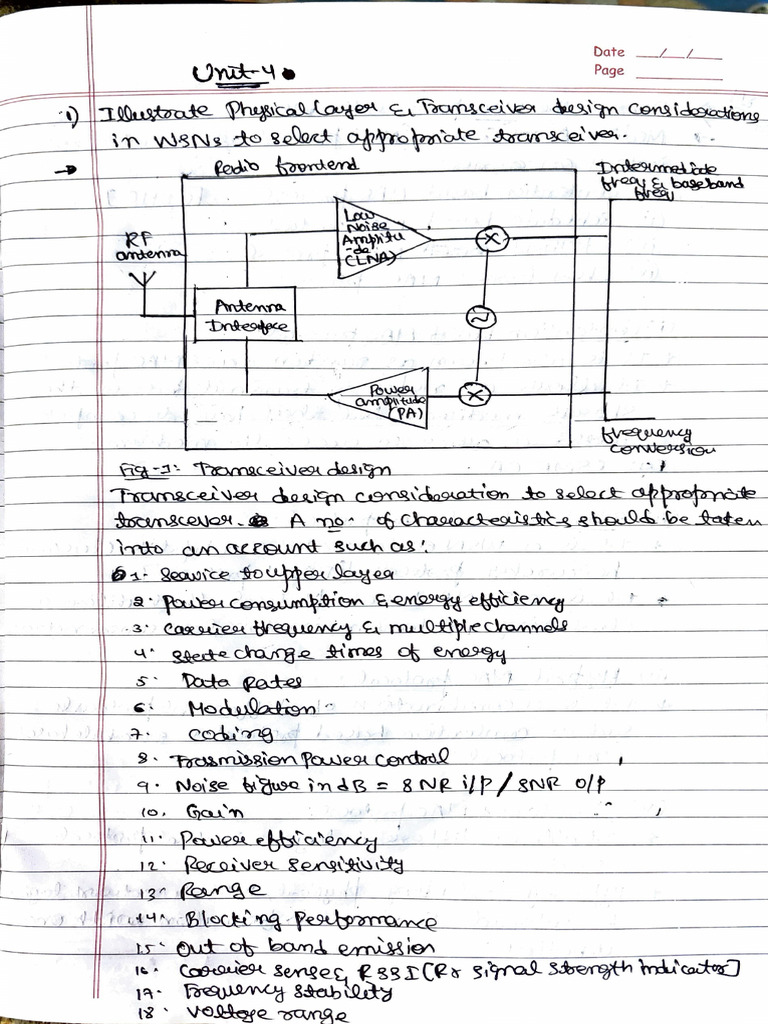 Date __/__/__
Page ______
Unit-4
1) Illustrate Physical Layer & Transceiver design considerations
in WSNs to select appropriate transceiver.
→ Redio frontend
Intermediate
freq & baseband
freq
RF
antenna
Low
Noise
Amplitu
-de
(LNA)
Antenna
Interface
Power
amplitude
(PA)
frequency
conversion
Fig-1: Transceiver design
Transceiver design consideration to select appropriate
transcever. A no. of characteristics should be taken
into an account such as:
1. Service to upper layer
2. Power consumption & energy efficiency
3. Carrier frequency & multiple channels
4. State change times of energy
5. Data Rates
6. Modulation
7. Coding
8. Trasmission Power Control
9. Noise figure in dB = SNR i/p / SNR o/p
10. Gain
11. Power efficiency
12. Receiver sensitivity
13. Range
14. Blocking Performance
15. Out of band emission
16. Carrier sense & RSSI [Rx signal strength indicator]
17. Frequency stability
18. Voltage range